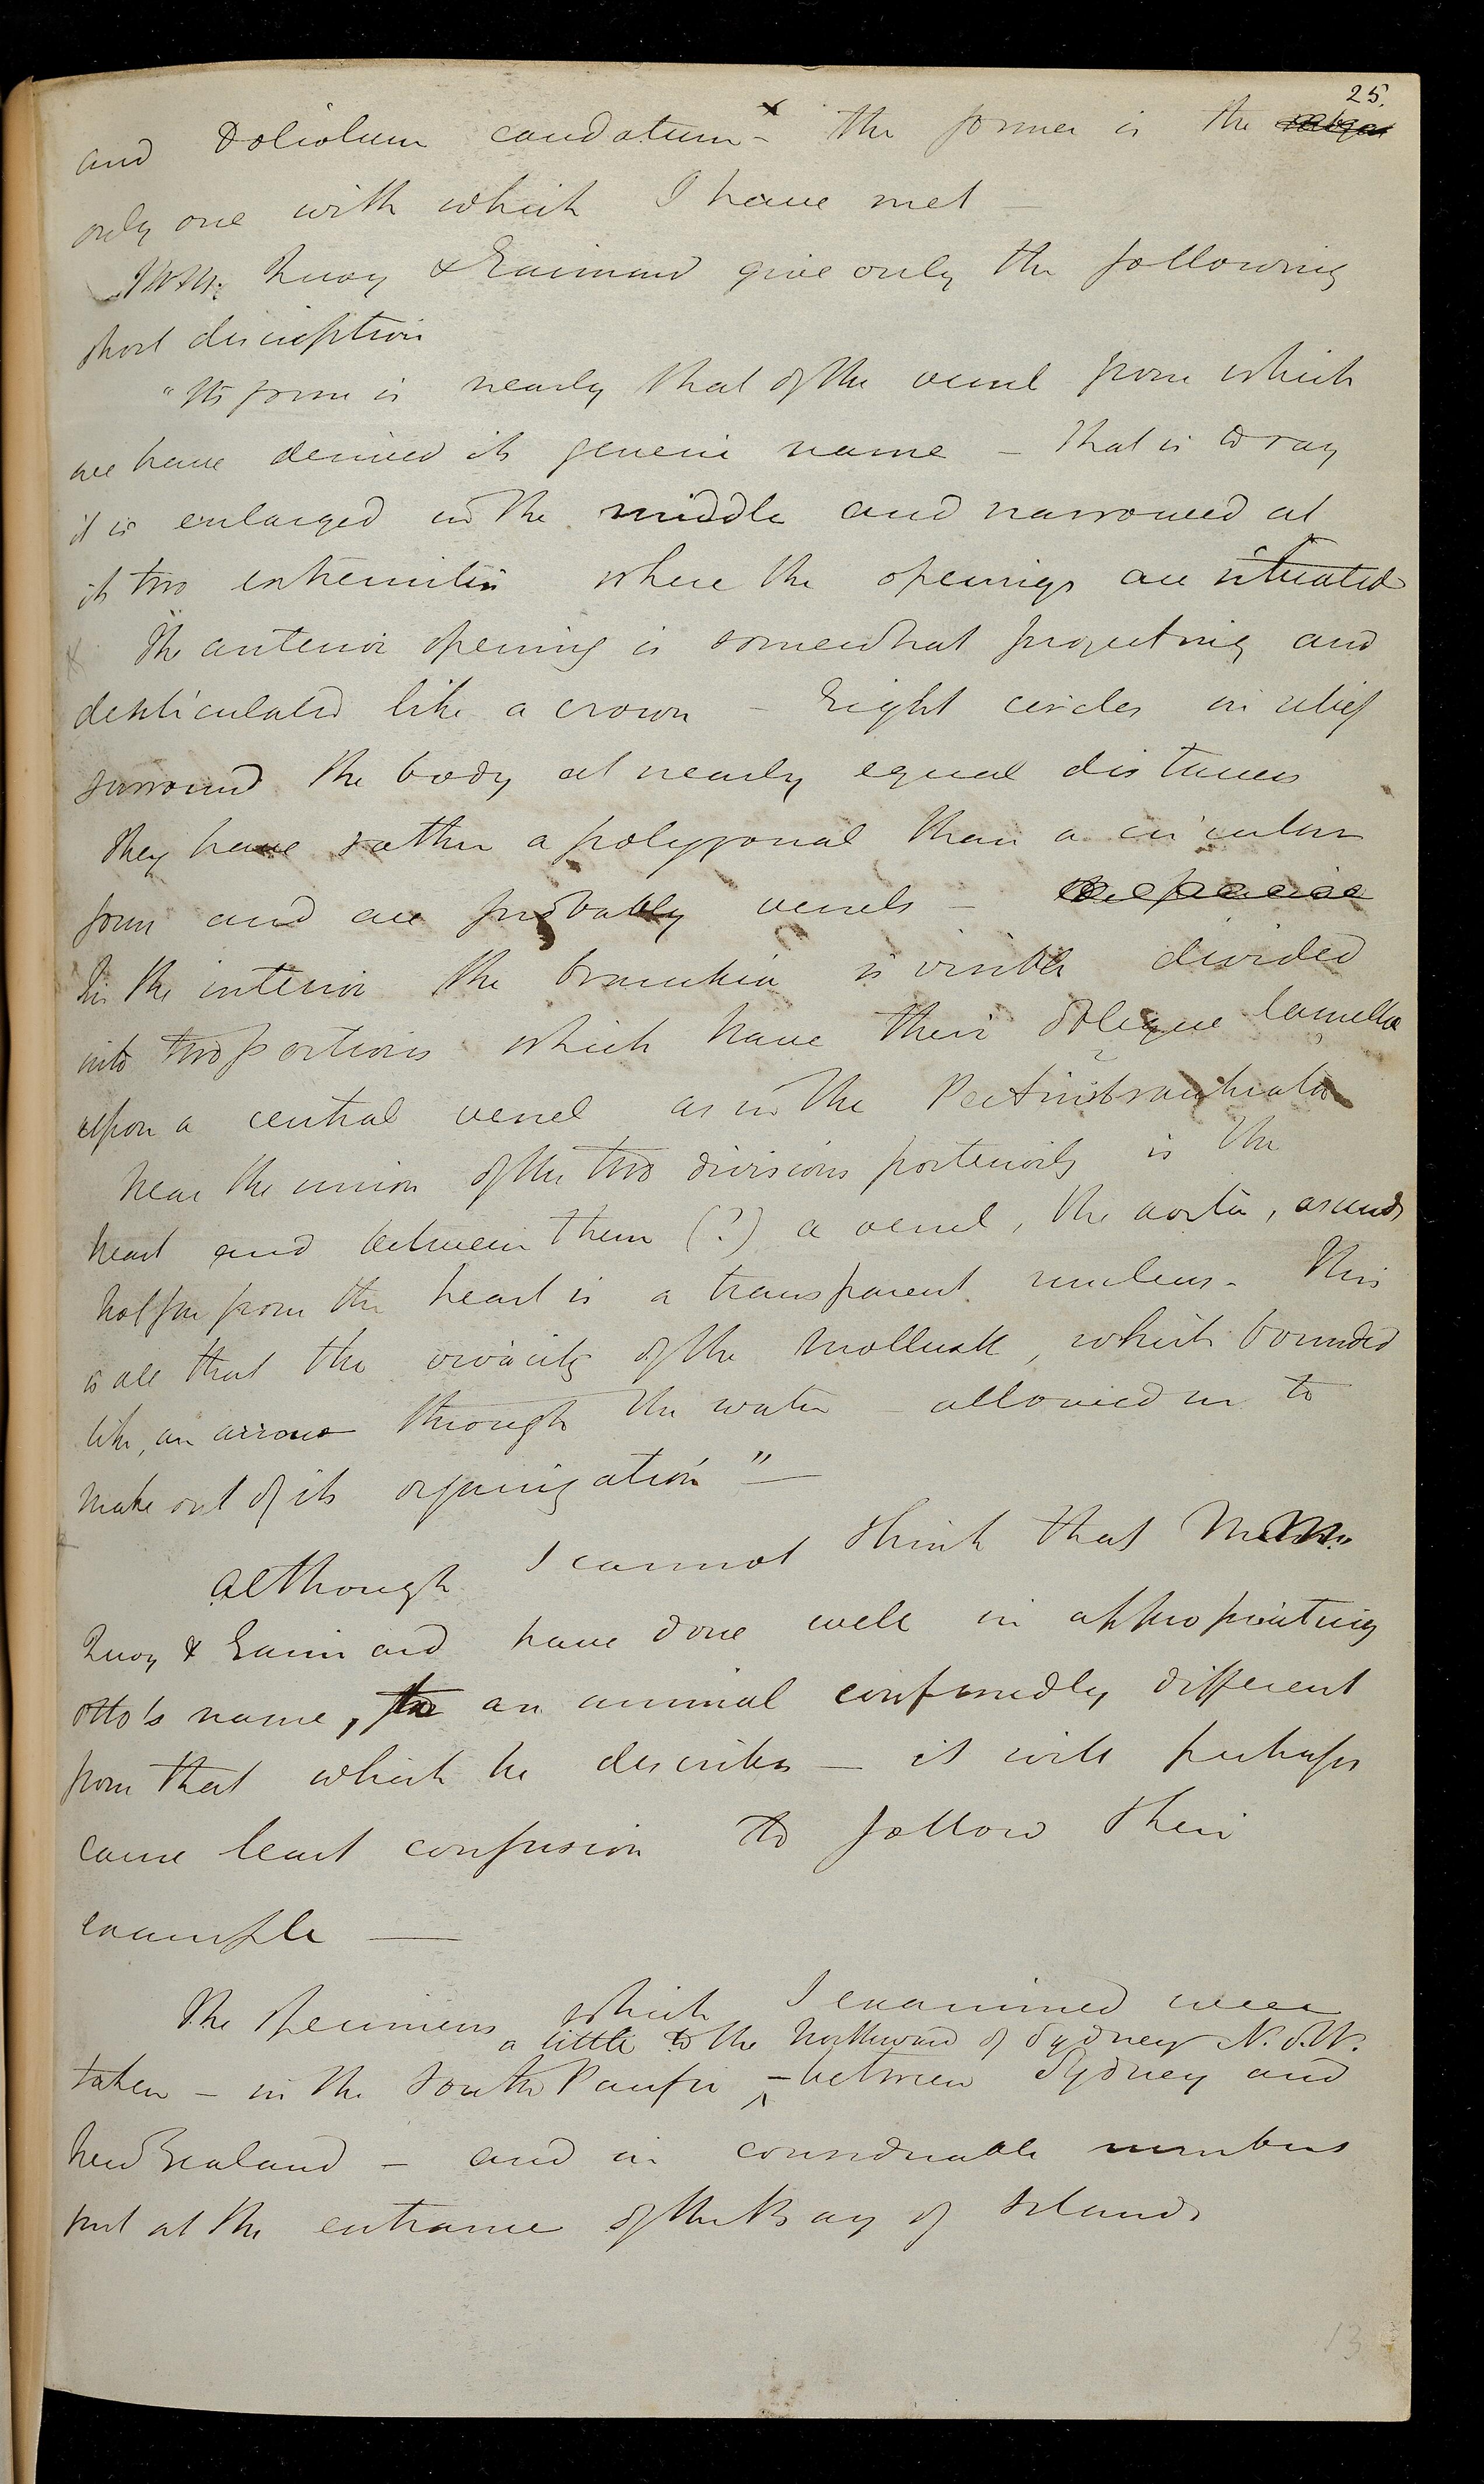 25.
and Doliolum caudatum - the former is the
only one with which I have met -
MM. Quoy & Gaimard give only the following
short description
"Its form is nearly that of the vessel from which
we have derived its generic name - that is to say
it is enlarged in the middle and narrowed at
its two extremities where the openings are situated
The anterior opening is somewhat projecting and
denticulated like a crown - Eight circles in relief
surround the body at nearly equal distances
They have rather a polygonal than a circular
form and are probably vessels -
In the interior the branchia is visible divided
into two portions which have their oblique lamellae
upon a central vessel as in the Pectinibranchiata
Near the union of the two divisions posteriorly is the
heart and between them (?) a vessel, the aorta, ascends
Not far from the heart is a transparent nucleus - This
is all that the vivacity of the Mollusk, which bounded
like, an arrow through the water - allowed us to
make out of its organization" -
Although I cannot think that MM.
Quoy & Gaimard have done well in appropriating
Otto's name, to an animal confessedly different
from that which he describes - it will perhaps
cause least confusion to follow their
example -
The specimens which I examined were
a little to the Northward of Sydney N.S.W.
taken - in the South Pacific - between Sydney and
New Zealand - and in considerable numbers
just at the entrance of the Bay of Islands
13